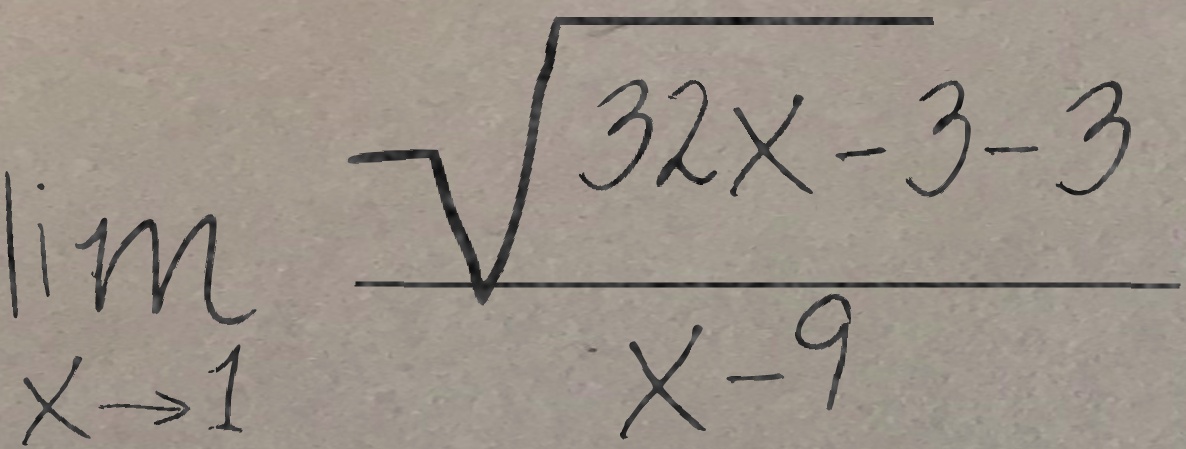 lim x→1 \frac{\sqrt{32x-3}-3}{x-9}